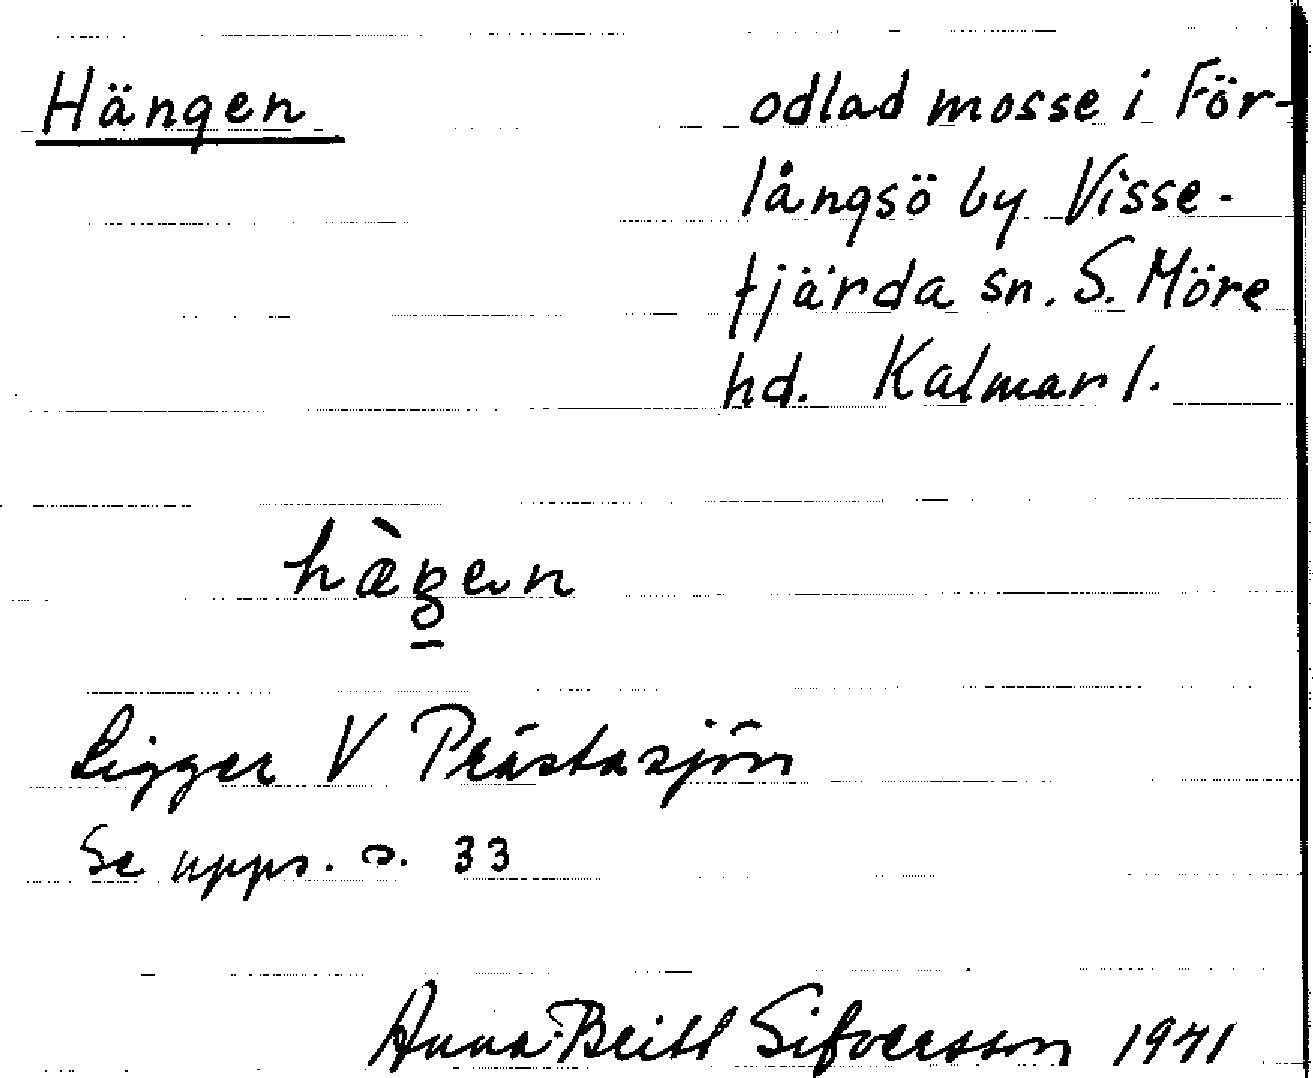 Hängen
odlad mosse i För-
långsö by Visse-
fjärda sn. S. Möre
hd. Kalmar l.
Ligger V Prästasjön
Se upps. s. 33
Anna-Britt Sifversson 1941